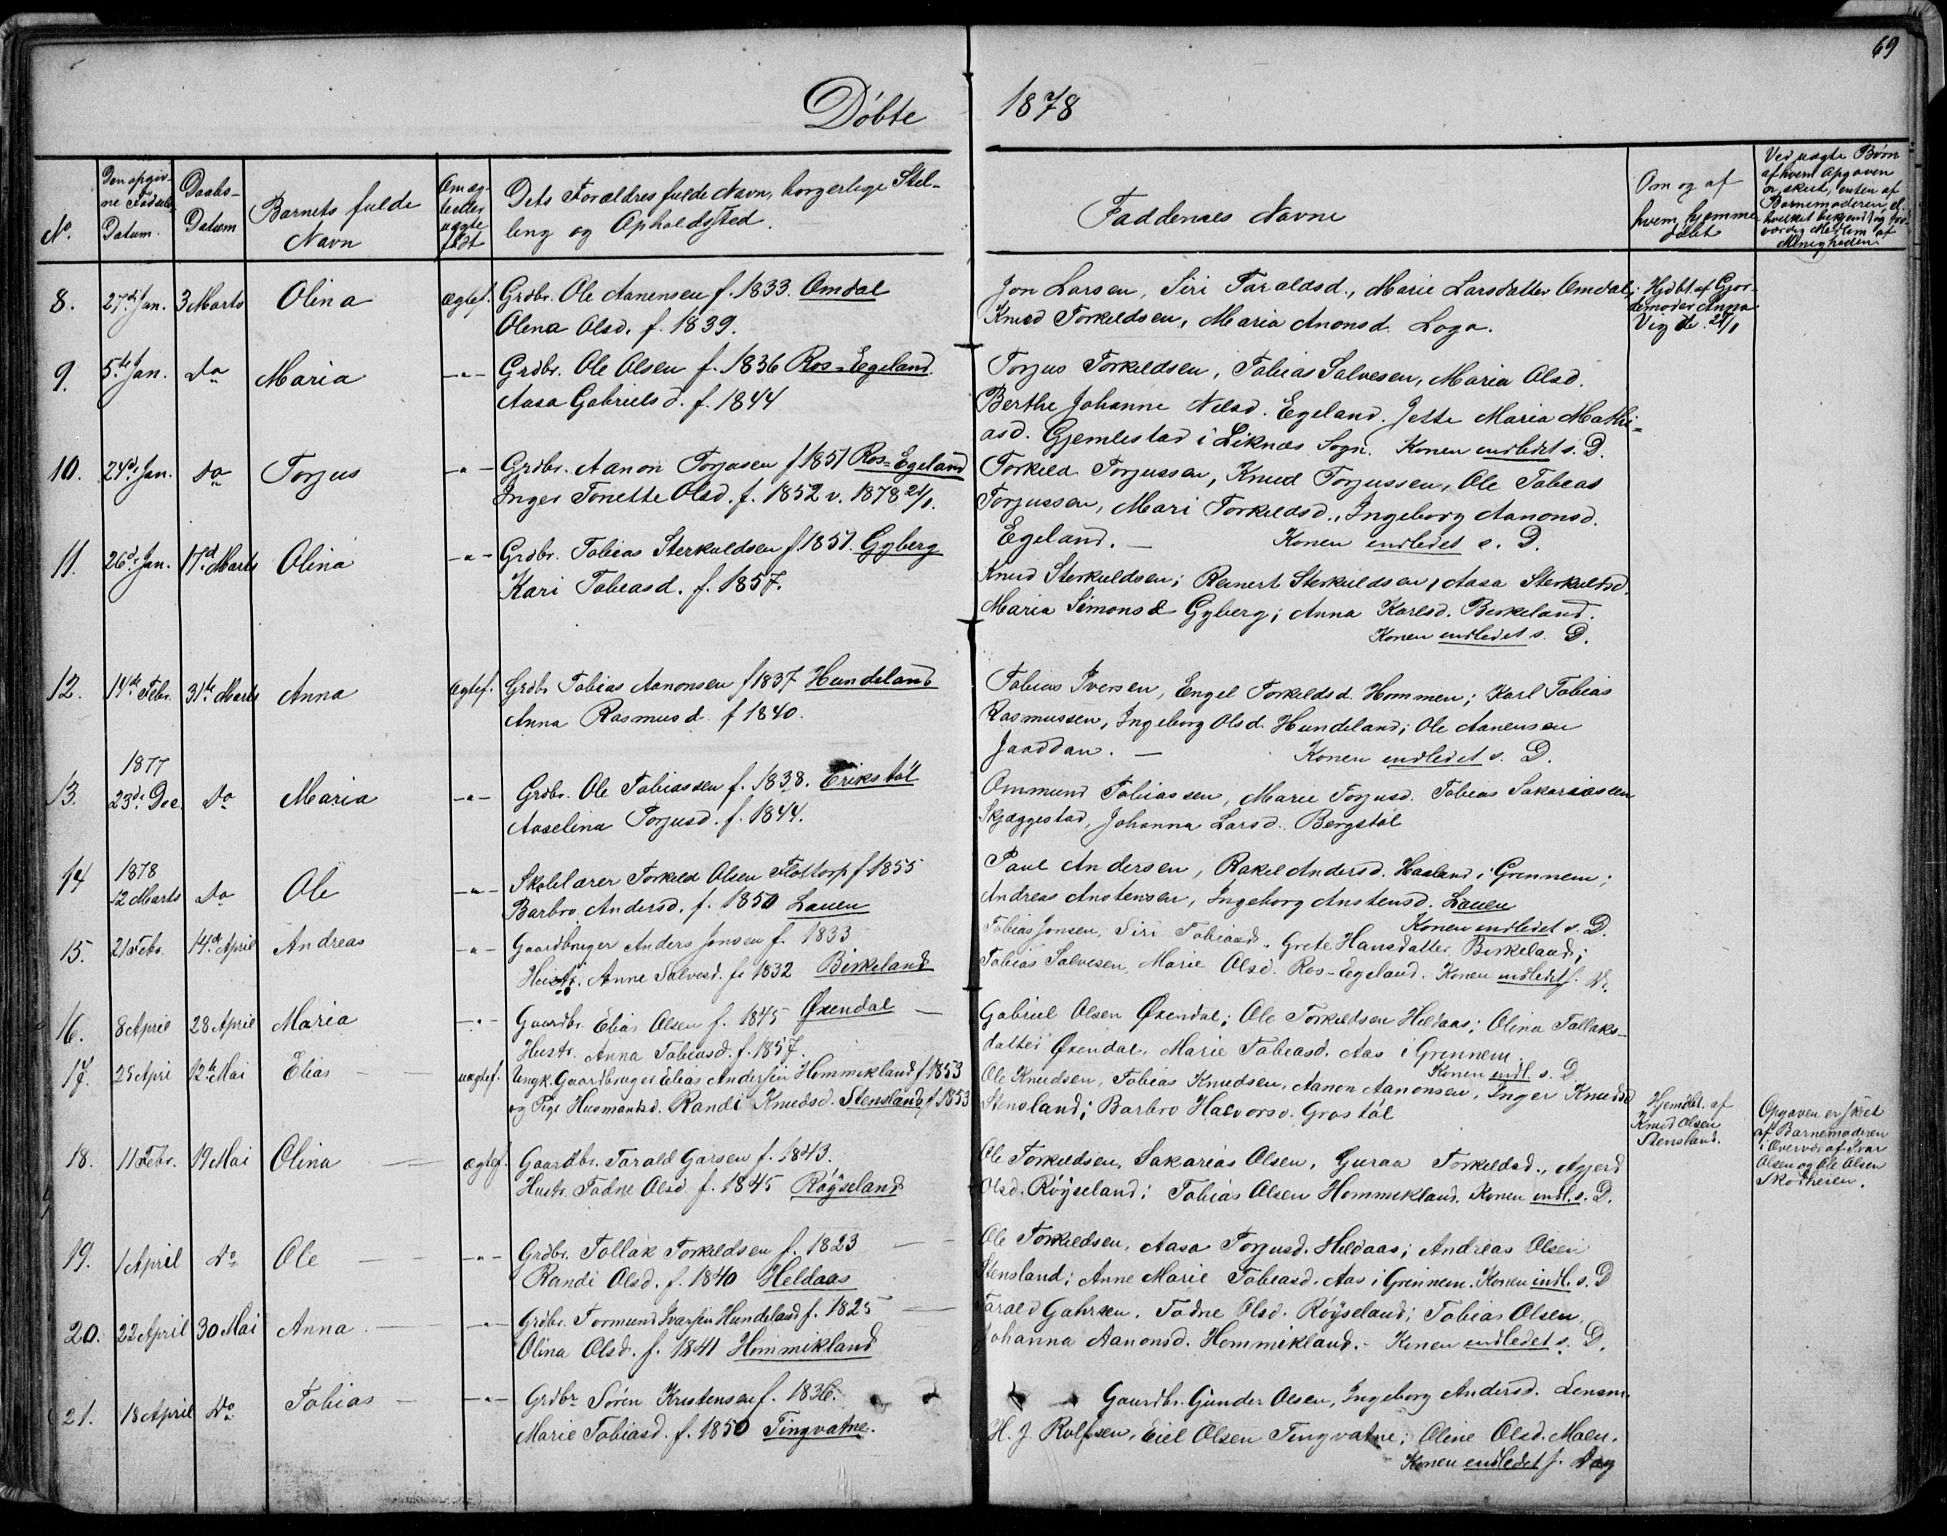 69
Döbte 1878
No.
Den opgivne Födsels Datum.
Daabs-Datum
Barnets fulde Navn
Om ægte eller uægte födt
Dets Forældres fulde Navn, borgerlige Stilling og Opholdssted.
Faddernes Navne
Om og af hvem hjemmedöbt
Ved uægte Börn af hvem Opgaven er skeet, enten af Barnemoderen el.
8. 27de Jan. 3 Marts Olina Ægtef. Grdbr. Ole Aanensen f. 1833. Omdal
Olena Olsd. f. 1839.
Jon Larsen, Siri Taraldsd., Marie Larsdatter Omdal,
Knud Torkildsen, Maria Anonsd. Loga.
Hjdbt. af Gjordemoder Anna
Vig d. 28/1
9. 5te Jan. Do Maria -"- Grdbr. Ole Olsen f. 1836 Ros-Egeland.
Aasa Gabrielsd. f. 1844
Torjus Torkildsen, Tobias Salvesen, Maria Olsd.
Berthe Johanne Nilsd. Egeland. Jette Maria Mathi-
asd. Gjemlestad i Liknæs Sogn. Konen indledet s. D.
10. 24de Jan. Do Torjus -"- Grdbr. Aanon Torjusen f 1851 Ros-Egeland
Inger Tonette Olsd. f. 1852 v. 1878 21/1.
Torkild Torjussen, Knud Torjussen, Ole Tobias
Torjussen, Mari Torkildsd., Ingeborg Aanonsd.
Egeland. — Konen indledet s. D.
11. 26de Jan. 17de Marts Olina -"- Grdbr. Tobias Sterkuldsen f 1851. Gyberg
Kari Tobiasd. f. 1857.
Knud Sterkuldsen; Reinert Sterkuldsen, Aasa Sterkuldsd.
Maria Simonsd Gyberg; Anna Karlsd. Birkeland.
Konen indledet s. D.
12. 14de Febr. 31te Marts Anna Ægtef. Grdbr Tobias Aanonsen f 1837 Hundeland
Anna Rasmusd. f 1840.
Tobias Iversen, Engel Torkildsd. Hommen; Karl Tobias
Rasmussen, Ingeborg Olsd. Hundeland; Ole Aanensen
Jaaddan. — Konen indledet s. D.
1877
13. 23de Dec. Do Maria -"- Grdbr. Ole Tobiassen f. 1838. Erikstöl
Aaselina Torjusd. f. 1844.
Ommund Tobiassen, Marie Torjusd. Tobias Sakariassen
Skjæggestad, Johanna Larsd. Bergstöl
1878
14 12 Marts Do Ole -"- Skolelærer Torkild Olsen Flottorp f 1855
Barbro Andersd. f. 1850 Lauen
Paul Andersen, Rakel Andersd. Haaland i Grennem;
Andreas Anstensen, Ingeborg Anstensd. Lauen
Konen indledet s. D.
15. 21 Febr. 14de April Andreas -"- Gaardbruger Anders Jonsen f. 1833
Hustr. Anne Salvesd. f. 1832 Birkeland
Tobias Jonsen, Siri Tobiasd., Grete Hansdatter Birkeland;
Tobias Salvesen, Marie Olsd. Ros-Egeland. Konen indledet s. D.
16. 8 April 28 April Maria -"- Gaardbr. Elias Olsen f. 1845 Öxendal
Hustr. Anna Tobiasd. f. 1857.
Gabriel Olsen Öxendal; Ole Torkildsen Heldaas; Olina Tollaks-
datter Öxendal. Marie Tobiasd. Aas i Grennem.
Konen indl. s. D
17. 25 April 12te Mai Elias uægtef. Ungk. Gaardbruger Elias Andersen Hommikland f 1853
og Pige Husmandsd. Randi Knudsd. Stensland f 1853
Ole Knudsen, Tobias Knudsen, Aanon Aanonsen, Inger Knudsd
Stensland; Barbro Halvorsd. Grostöl
Hjemdbt. af
Knud Olsen
Stensland.
Opgaven er skeet
af Barnemoderen
i Overvær af Ivar
Olsen og Ole Olsen
Skodheien.
18. 11 Febr. 19 Mai Olina Ægtef. Gaardbr. Tarald Garsen f. 1843.
Hustr. Tadne Olsd. f. 1845 Röyseland
Ole Torkildsen, Sakarias Olsen, Guraa Torkildsd., Asjerd
Olsd. Röyseland; Tobias Olsen Hommikland. Konen indl. s. D.
19. 1 April Do Ole -"- Grdbr. Tollak Torkildsen f. 1823
Randi Olsd. f. 1840 Heldaas
Ole Torkildsen, Aasa Torjusd. Heldaas; Andreas Olsen
Stensland; Anne Marie Tobiasd. Aas i Grennem. Konen indl. s. D
20. 22 April 30 Mai Anna -"- Grdbr. Tormund Ivarsen Hundeland f. 1825
Olina Olsd. f. 1841 Hommikland
Tarald Gahrsen, Tadne Olsd. Röyseland; Tobias Olsen,
Johanna Aanonsd. Hommikland. - Konen indledet s. D.
21. 18 April Do Tobias -"- Grdbr Sören Kristensen f. 1836.
Marie Tobiasd. f. 1850 Tingvatne.
Gaardbr. Gunder Olsen, Ingeborg Andersd. Lensm.
H. J. Rolfsen, Eiel Olsen Tingvatne; Oline Olsd. Moen.
Konen indledet s. Dag